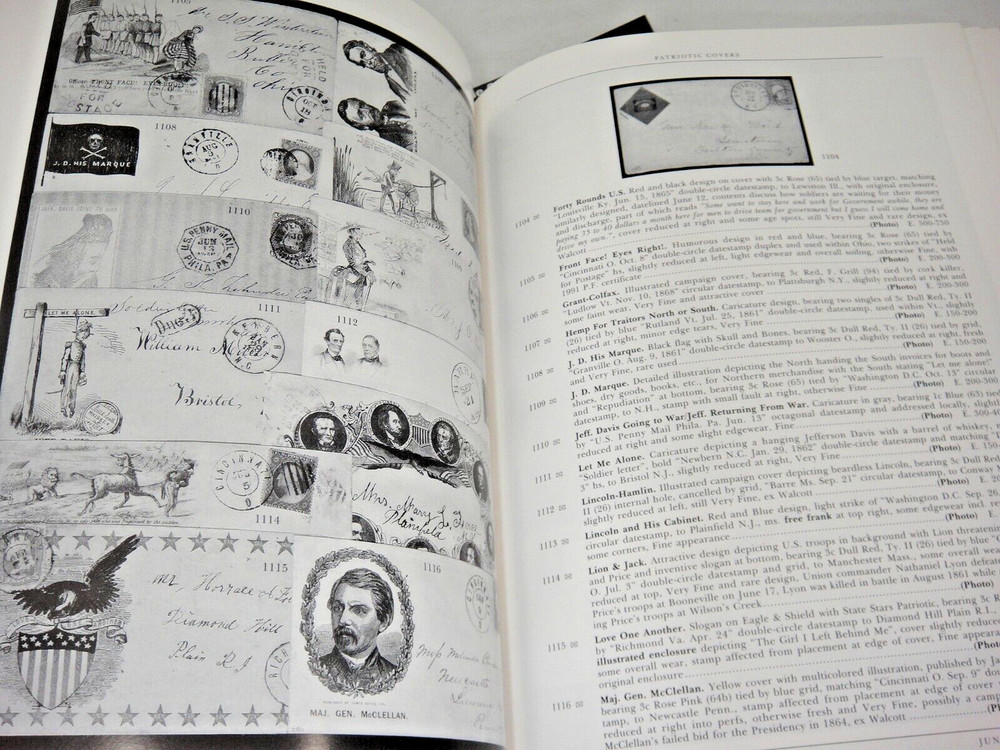 1105
Mr. J. S. Winterstein
Hamilt
Butler
Co
Ohio
FRONT FACE!
HELD FOR POSTAGE
1108
J. D. HIS MARQUE
GRANVILLE AUG
1110
JEFF. DAVIS GOING TO WAR.
U.S. PENNY MAIL JUN 15 PHILA. PA
1111
LET ME ALONE.
Due 3
William
Bristol,
NEWBERN N.C.
1112
CINCINNATI
5
Mrs. Mary L.
Plainfield
1114
1115
Mr Horrace
Diamond Hill
Plain R I
1116
Miss
Newcastle
MAJ. GEN. McCLELLAN.
PATRIOTIC COVERS
1104
1104 ✉ Forty Rounds U.S. Red and black design on cover with 3c Rose (65) tied by blue target, matching
"Louisville Ky. Jun. 15, 1865" double-circle datestamp, to Lewiston Ill., with original enclosure,
similarly designed, datelined June 12, contents discuss how soldiers are waiting for their money
and discharge, part of which reads "Some want to stay here and work for Government awhile, they are
paying 35 to 40 dollars a month here for men to drive team for government but I guess I will come home and
drive my own.", cover reduced at right and some age spots, still Very Fine and rare design, ex
Walcott (Photo) E. 500-750
1105 ✉ Front Face! Eyes Right!. Humorous design in red and blue, bearing 3c Rose (65) tied by
"Cincinnati O. Oct. 8" double-circle datestamp duplex and used within Ohio, two strikes of "Held
for Postage" hs, slightly reduced at left, light edgewear and overall soiling, otherwise Fine, with
1991 P.F. certificate (Photo) E. 200-300
1106 ✉ Grant-Colfax. Illustrated campaign cover, bearing 3c Red, F. Grill (94) tied by cork killer,
"Ludlow Vt. Nov. 10, 1868" circular datestamp, to Plattsburgh N.Y., slightly reduced at right and
some faint wear, Very Fine and attractive cover (Photo) E. 200-300
1107 ✉ Hemp For Traitors North or South. Caricature design, bearing two singles of 3c Dull Red, Ty. II
(26) tied by blue "Rutland Vt. Jul. 25, 1861" double-circle datestamp, used within Vt., slightly
reduced at right, minor edge tears, Very Fine (Photo) E. 200-300
1108 ✉ J. D. His Marque. Black flag with Skull and Bones, bearing 3c Dull Red, Ty. II (26) tied by grid,
"Granville O. Aug. 9, 1861" double-circle datestamp to Wooster O., slightly reduced at right, fresh
and Very Fine, rare used (Photo) E. 150-200
1109 ✉ J. D. Marque. Detailed illustration depicting the North handing the South invoices for boots and
shoes, dry goods, books, etc., for Northern merchandise with the South stating "Let me alone!"
and "Repudiation" at bottom, bearing 3c Rose (65) tied by "Washington D.C. Oct. 15" circular
datestamp, to N.H., stamp with small fault at right, otherwise Fine (Photo) E. 200-300
1110 ✉ Jeff. Davis Going to War/Jeff. Returning From War. Caricature in gray, bearing 1c Blue (63) tied
by "U.S. Penny Mail Phila. Pa. Jun. 15" octagonal datestamp and addressed locally, slightly
reduced at right and some slight edgewear, Fine (Photo) E.
1111 ✉ Let Me Alone. Caricature depicting a hanging Jefferson Davis with a barrel of whiskey,
"Soldier letter", bold "Newbern N.C. Jan. 29, 1862" double-circle datestamp and matching
3" hs, to Bristol N.J., slightly reduced at right, Very Fine (Photo) E. 150
1112 ✉ Lincoln-Hamlin. Illustrated campaign cover depicting beardless Lincoln, bearing 3c Dull Red
II (26) internal hole, cancelled by grid, "Barre Ms. Sep. 21" circular datestamp, to Conway
slightly reduced at left, still Very Fine, ex Walcott (Photo) E.
1113 ✉ Lincoln and His Cabinet. Red and Blue design, light strike of "Washington D.C. Sep. 26
circular datestamp, to Plainfield N.J., ms. free frank at top right, some edgewear incl.
some corners, Fine appearance (Photo) E.
1114 ✉ Lion & Jack. Attractive design depicting U.S. troops in background with Lion threatening
and Price and inventive slogan at bottom, bearing 3c Dull Red, Ty. II (26) tied by blue
O. Jul. 5" double-circle datestamp and grid, to Manchester Mass., some overall wear
reduced at top, Very Fine and rare design. Union commander Nathaniel Lyon defeated
Price's troops at Booneville on June 17, Lyon was killed in battle in August 1861 while
ing Price's troops at Wilson's Creek (Photo)
1115 ✉ Love One Another. Slogan on Eagle & Shield with State Stars Patriotic, bearing 3c
by "Richmond Va. Apr. 24" double-circle datestamp to Diamond Hill Plain R.I.,
illustrated enclosure depicting "The Girl I Left Behind Me", cover slightly reduced
some overall wear, stamp affected from placement at edge of cover, Fine appearance
original enclosure (Photo)
1116 ✉ Maj. Gen. McClellan. Yellow cover with multicolored illustration, published by
bearing 3c Rose Pink (64b) tied by blue grid, matching "Cincinnati O. Sep. 9"
tamp, to Newcastle Penn., stamp affected from placement at edge of cover
reduced at right into perfs, otherwise fresh and Very Fine, possibly a
McClellan's failed bid for the Presidency in 1864, ex Walcott
JUN